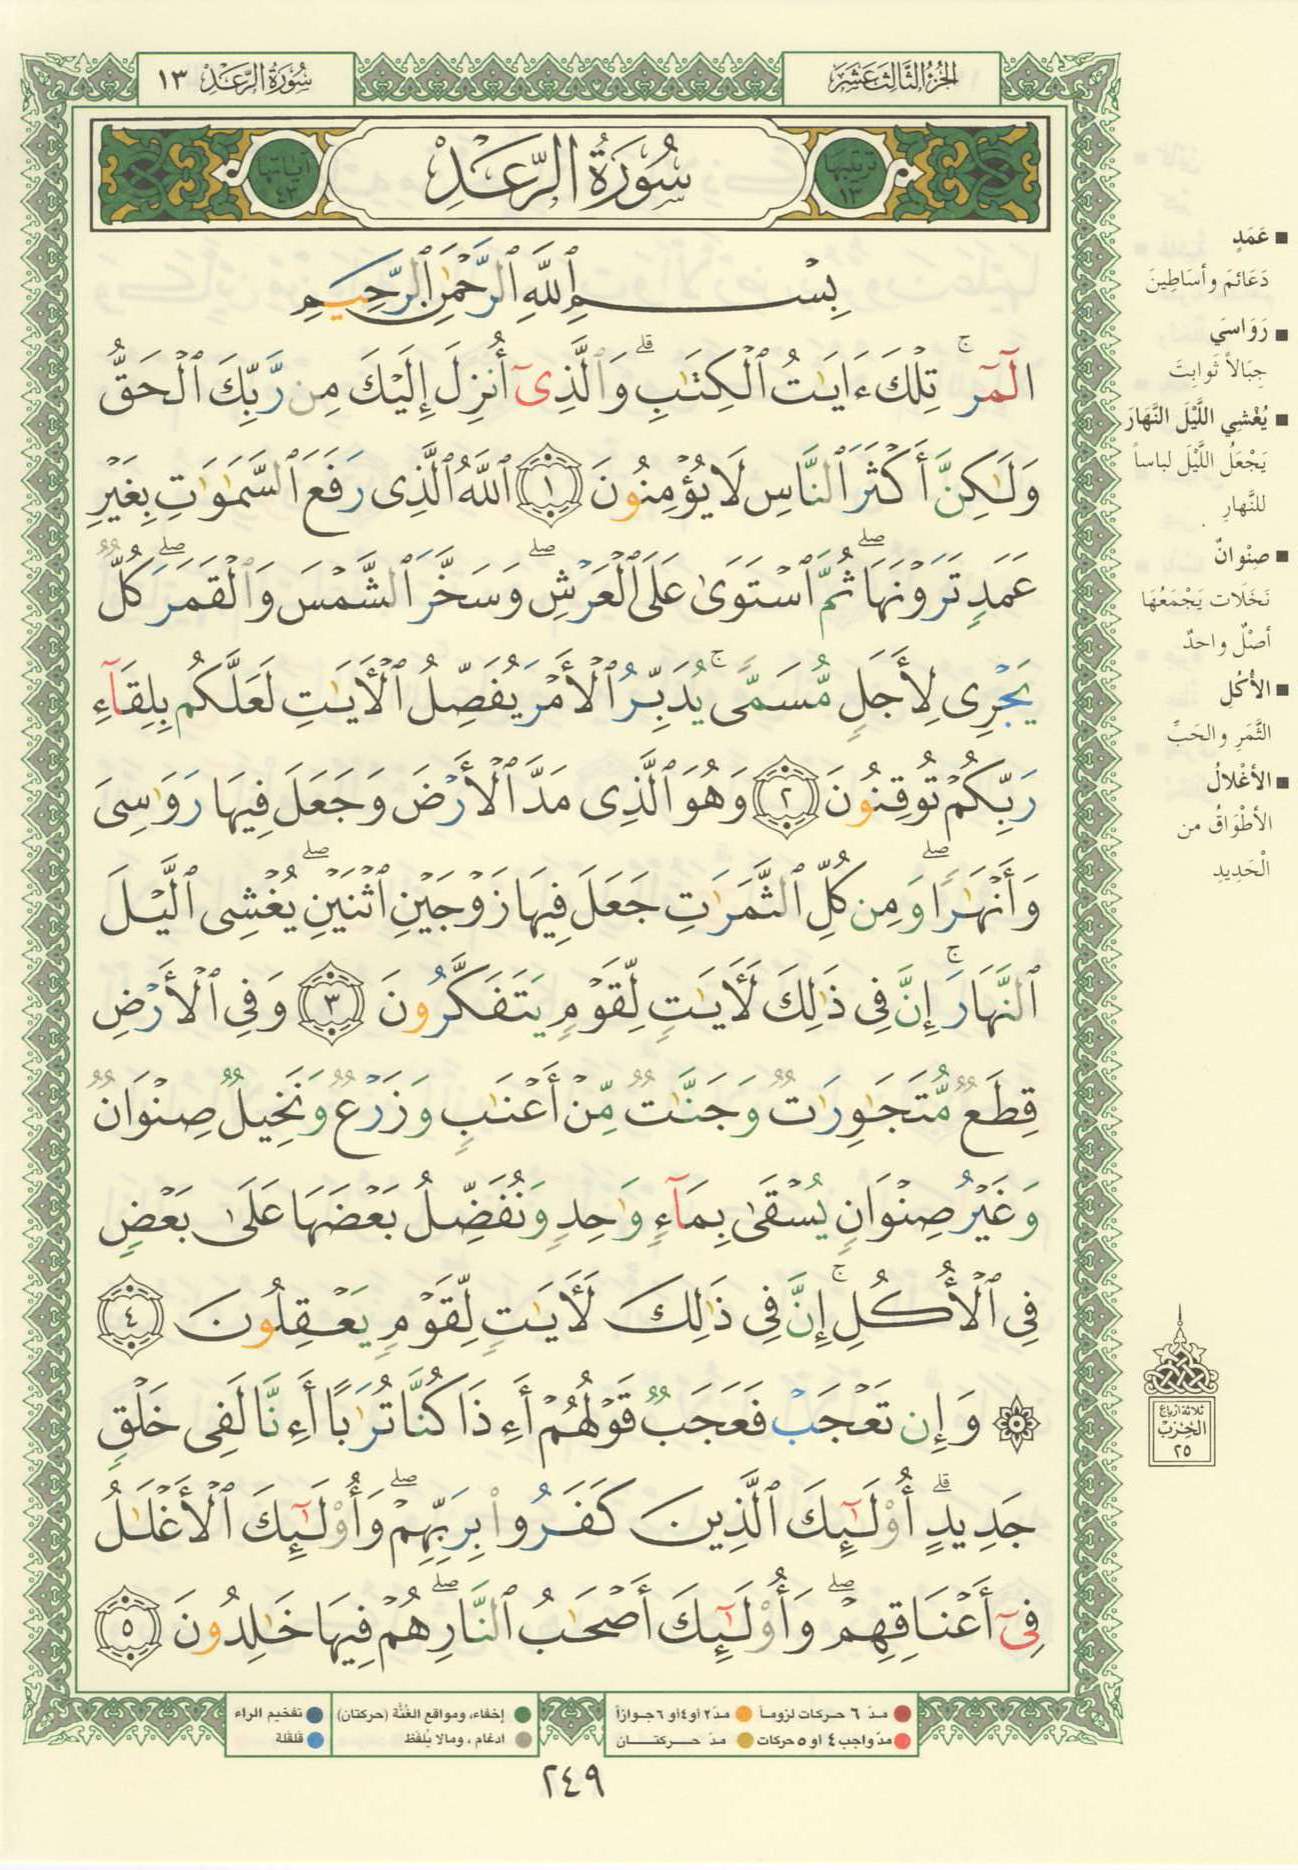 سُورَةُ الرَّعْدِ ١٣
الجُزْءُ الثَّالِثَ عَشَرَ
ترتيبها ١٣
سُورَةُ الرَّعْدِ
آياتها ٤٣
بِسْمِ ٱللَّهِ ٱلرَّحْمَٰنِ ٱلرَّحِيمِ
الٓمٓر ۚ تِلْكَ ءَايَٰتُ ٱلْكِتَٰبِ ۗ وَٱلَّذِىٓ أُنزِلَ إِلَيْكَ مِن رَّبِّكَ ٱلْحَقُّ
وَلَٰكِنَّ أَكْثَرَ ٱلنَّاسِ لَا يُؤْمِنُونَ ١ ٱللَّهُ ٱلَّذِى رَفَعَ ٱلسَّمَٰوَٰتِ بِغَيْرِ
عَمَدٍ تَرَوْنَهَا ۖ ثُمَّ ٱسْتَوَىٰ عَلَى ٱلْعَرْشِ ۖ وَسَخَّرَ ٱلشَّمْسَ وَٱلْقَمَرَ ۖ كُلٌّ
يَجْرِى لِأَجَلٍ مُّسَمًّى ۚ يُدَبِّرُ ٱلْأَمْرَ يُفَصِّلُ ٱلْءَايَٰتِ لَعَلَّكُم بِلِقَآءِ
رَبِّكُمْ تُوقِنُونَ ٢ وَهُوَ ٱلَّذِى مَدَّ ٱلْأَرْضَ وَجَعَلَ فِيهَا رَوَٰسِىَ
وَأَنْهَٰرًا ۖ وَمِن كُلِّ ٱلثَّمَرَٰتِ جَعَلَ فِيهَا زَوْجَيْنِ ٱثْنَيْنِ ۖ يُغْشِى ٱلَّيْلَ
ٱلنَّهَارَ ۚ إِنَّ فِى ذَٰلِكَ لَءَايَٰتٍ لِّقَوْمٍ يَتَفَكَّرُونَ ٣ وَفِى ٱلْأَرْضِ
قِطَعٌ مُّتَجَٰوِرَٰتٌ وَجَنَّٰتٌ مِّنْ أَعْنَٰبٍ وَزَرْعٌ وَنَخِيلٌ صِنْوَانٌ
وَغَيْرُ صِنْوَانٍ يُسْقَىٰ بِمَآءٍ وَٰحِدٍ وَنُفَضِّلُ بَعْضَهَا عَلَىٰ بَعْضٍ
فِى ٱلْأُكُلِ ۚ إِنَّ فِى ذَٰلِكَ لَءَايَٰتٍ لِّقَوْمٍ يَعْقِلُونَ ٤
۞ وَإِن تَعْجَبْ فَعَجَبٌ قَوْلُهُمْ أَءِذَا كُنَّا تُرَٰبًا أَءِنَّا لَفِى خَلْقٍ
جَدِيدٍ ۗ أُو۟لَٰٓئِكَ ٱلَّذِينَ كَفَرُوا۟ بِرَبِّهِمْ ۖ وَأُو۟لَٰٓئِكَ ٱلْأَغْلَٰلُ
فِىٓ أَعْنَاقِهِمْ ۖ وَأُو۟لَٰٓئِكَ أَصْحَٰبُ ٱلنَّارِ ۖ هُمْ فِيهَا خَٰلِدُونَ ٥
■ عَمَدٍ
دَعَائمَ وأسَاطِينَ
■ رَوَاسِيَ
جِبَالاً ثَوابِتَ
■ يُغْشِي اللَّيْلَ النَّهَارَ
يَجْعَلُ اللَّيْلَ لباساً
للنَّهارِ
■ صِنْوانٌ
نَخَلَات يَجْمَعُهَا
أصْلٌ واحدٌ
■ الأُكُلِ
الثَّمَرِ والحَبِّ
■ الأغْلالُ
الأطْوَاقُ من
الْحَدِيدِ
ثلاثة أرباع
الحِزْبِ
٢٥
مدّ ٦ حركات لزوماً
مدّ ٢ أو ٤ أو ٦ جوازاً
مدّ واجب ٤ أو ٥ حركات
مدّ حركتــان
إخفاء، ومواقع الغُنَّة (حركتان)
ادغام ، ومالا يُلفَظ
تفخيم الراء
قلقلة
٢٤٩